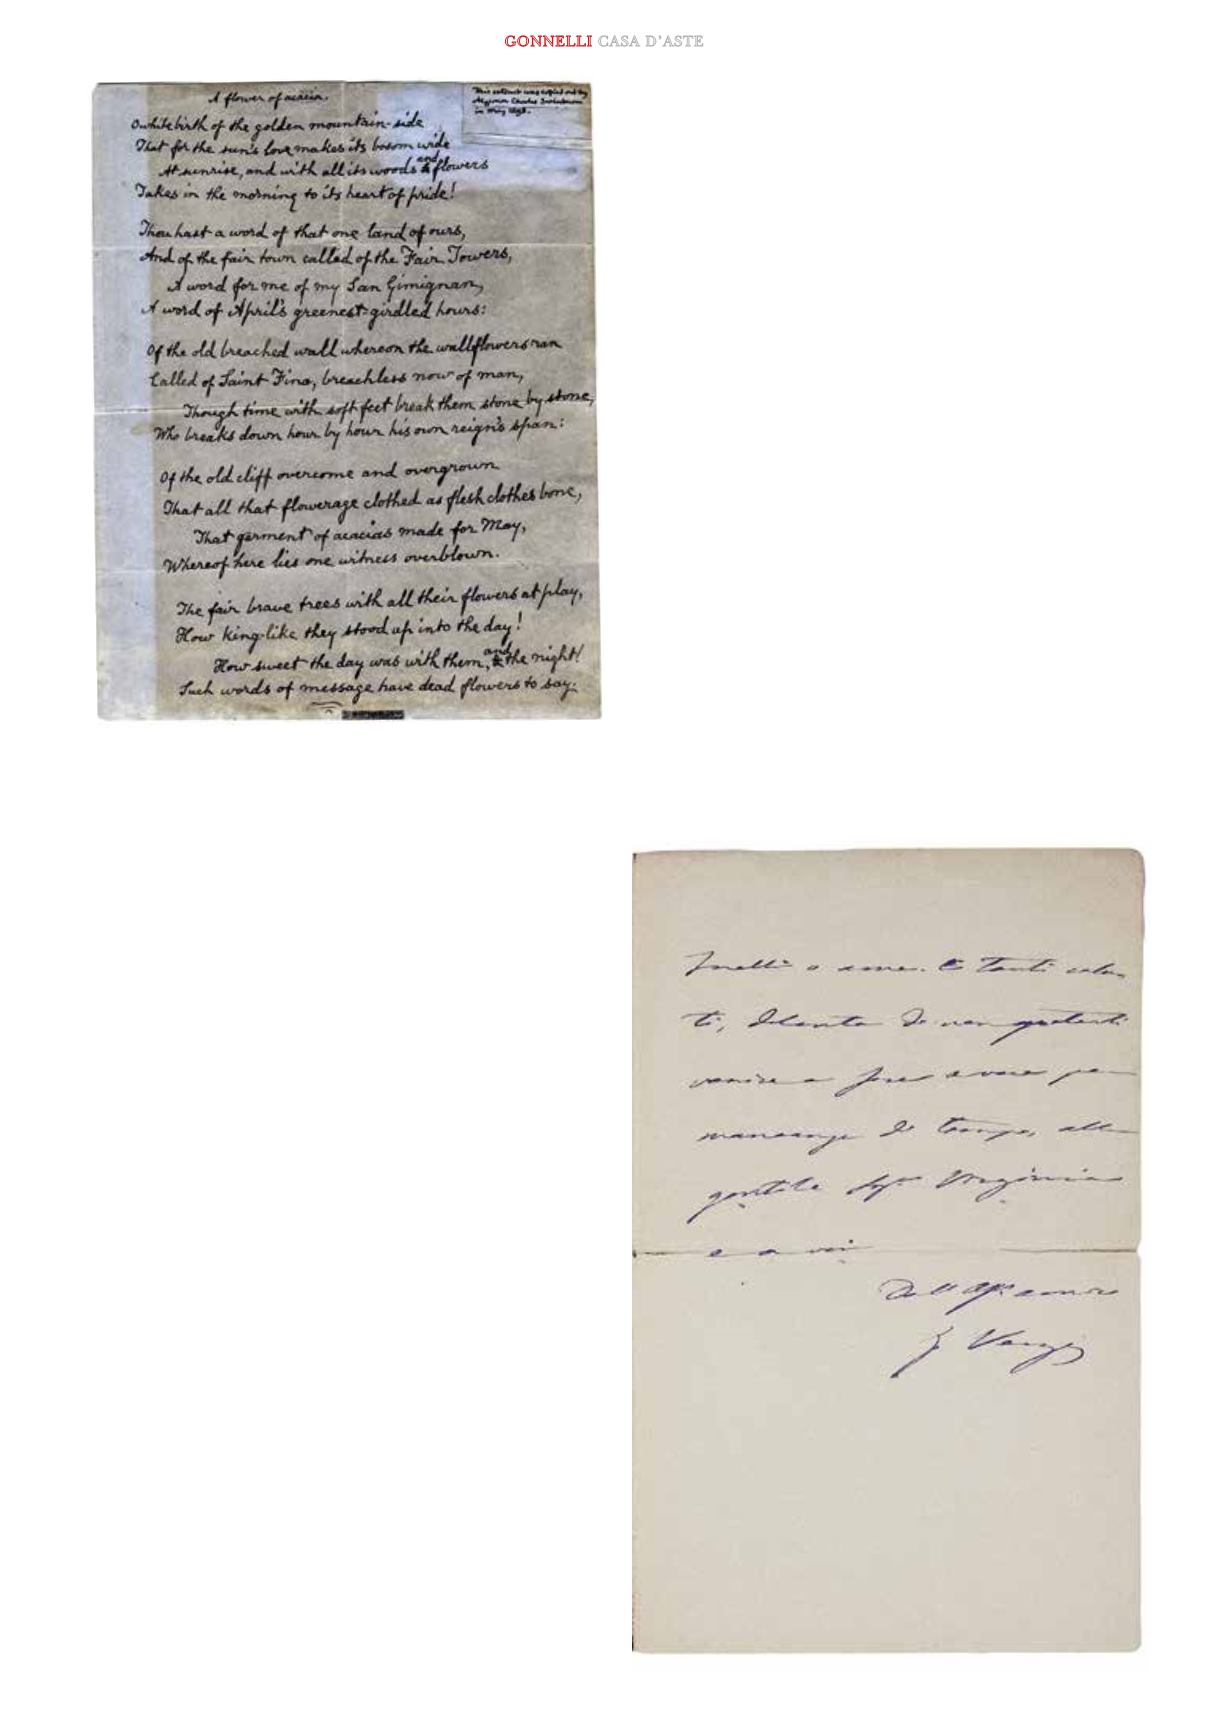 GONNELLI CASA D'ASTE
A flower of acacia.
This extract was copied out by
Algernon Charles Swinburne
in May
O white birth of the golden mountain-side
That for the sun's love makes its bosom wide
and
At sunrise, and with all its woods & flowers
Takes in the morning to its heart of pride!
Thou hast a word of that one land of ours,
And of the fair town called of the Fair Towers,
A word for me of my San Gimignan,
A word of April's greenest-girdled hours:
Of the old breached wall whereon the wallflowers ran
Called of Saint Fina, breachless now of man,
Though time with soft feet break them stone by stone,
Who breaks down hour by hour his own reign's span:
Of the old cliff overcome and overgrown
That all that flowerage clothed as flesh clothes bone,
That garment of acacias made for May,
Whereof here lies one witness overblown.
The fair brave trees with all their flowers at play,
How king-like they stood up into the day!
and
How sweet the day was with them, & the night!
Such words of message have dead flowers to say.
E tanti salu
ti, di non
venire a
mancanza di tempo, alla
gentile Sigra Virginia
e a voi
Dall' amico
G Verga